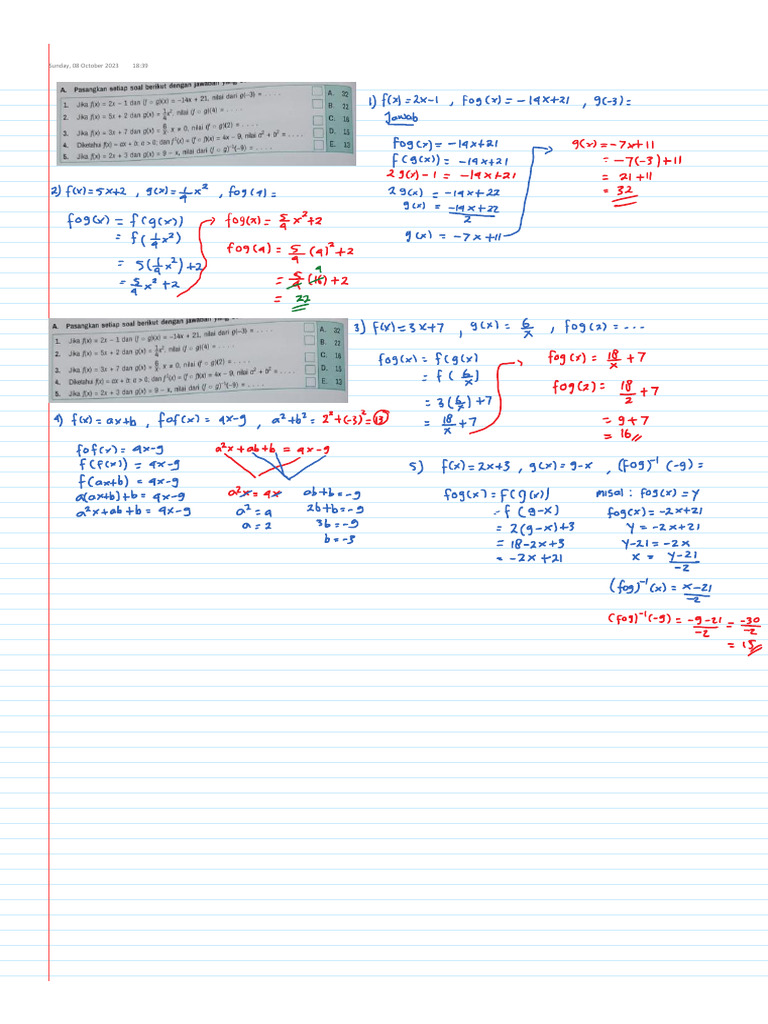 Sunday, 08 October 2023 18:39
A. Pasangkan setiap soal berikut dengan jawaban yang
1. Jika f(x) = 2x − 1 dan (f ∘ g)(x) = −14x + 21, nilai dari g(−3) = . . . .
2. Jika f(x) = 5x + 2 dan g(x) = 1/4 x², nilai (f ∘ g)(4) = . . . .
3. Jika f(x) = 3x + 7 dan g(x) = 6/x, x ≠ 0, nilai (f ∘ g)(2) = . . . .
4. Diketahui f(x) = ax + b; a > 0; dan (f ∘ f)(x) = 4x − 9, nilai a² + b² = . . . .
5. Jika f(x) = 2x + 3 dan g(x) = 9 − x, nilai dari (f ∘ g)⁻¹(−9) = . . . .
A. 32
B. 22
C. 16
D. 15
E. 13
1) f(x) = 2x-1 , fog(x) = -14x+21 , g(-3) =
Jawab
fog(x) = -14x+21
f(g(x)) = -14x+21
2g(x)-1 = -14x+21
2g(x) = -14x+22
g(x) = -14x+22/2
g(x) = -7x+11
g(x) = -7x+11
= -7(-3)+11
= 21+11
= 32
2) f(x) = 5x+2 , g(x) = 1/4 x² , fog(4) =
fog(x) = f(g(x))
= f(1/4 x²)
= 5(1/4 x²)+2
= 5/4 x²+2
fog(x) = 5/4 x²+2
fog(4) = 5/4 (4)²+2
= 5/4 (16)+2
4
= 22
A. Pasangkan setiap soal berikut dengan jawaban yang
1. Jika f(x) = 2x − 1 dan (f ∘ g)(x) = −14x + 21, nilai dari g(−3) = . . . .
2. Jika f(x) = 5x + 2 dan g(x) = 1/4 x², nilai (f ∘ g)(4) = . . . .
3. Jika f(x) = 3x + 7 dan g(x) = 6/x, x ≠ 0, nilai (f ∘ g)(2) = . . . .
4. Diketahui f(x) = ax + b; a > 0; dan (f ∘ f)(x) = 4x − 9, nilai a² + b² = . . . .
5. Jika f(x) = 2x + 3 dan g(x) = 9 − x, nilai dari (f ∘ g)⁻¹(−9) = . . . .
A. 32
B. 22
C. 16
D. 15
E. 13
3) f(x) = 3x+7 , g(x) = 6/x , fog(2) = ...
fog(x) = f(g(x)
= f(6/x)
= 3(6/x)+7
= 18/x +7
fog(x) = 18/x +7
fog(2) = 18/2 +7
= 9+7
= 16
4) f(x) = ax+b , fof(x) = 4x-9 , a²+b² = 2²+(-3)² = 13
fof(x) = 4x-9
f(f(x)) = 4x-9
f(ax+b) = 4x-9
a(ax+b)+b = 4x-9
a²x+ab+b = 4x-9
a²x+ab+b = 4x-9
a²x = 4x
a² = 4
a = 2
ab+b = -9
2b+b = -9
3b = -9
b = -3
5) f(x) = 2x+3 , g(x) = 9-x , (fog)⁻¹(-9) =
fog(x) = f(g(x))
= f(9-x)
= 2(9-x)+3
= 18-2x+3
= -2x+21
misal : fog(x) = y
fog(x) = -2x+21
y = -2x+21
y-21 = -2x
x = y-21/-2
(fog)⁻¹(x) = x-21/-2
(fog)⁻¹(-9) = -9-21/-2 = -30/-2
= 15